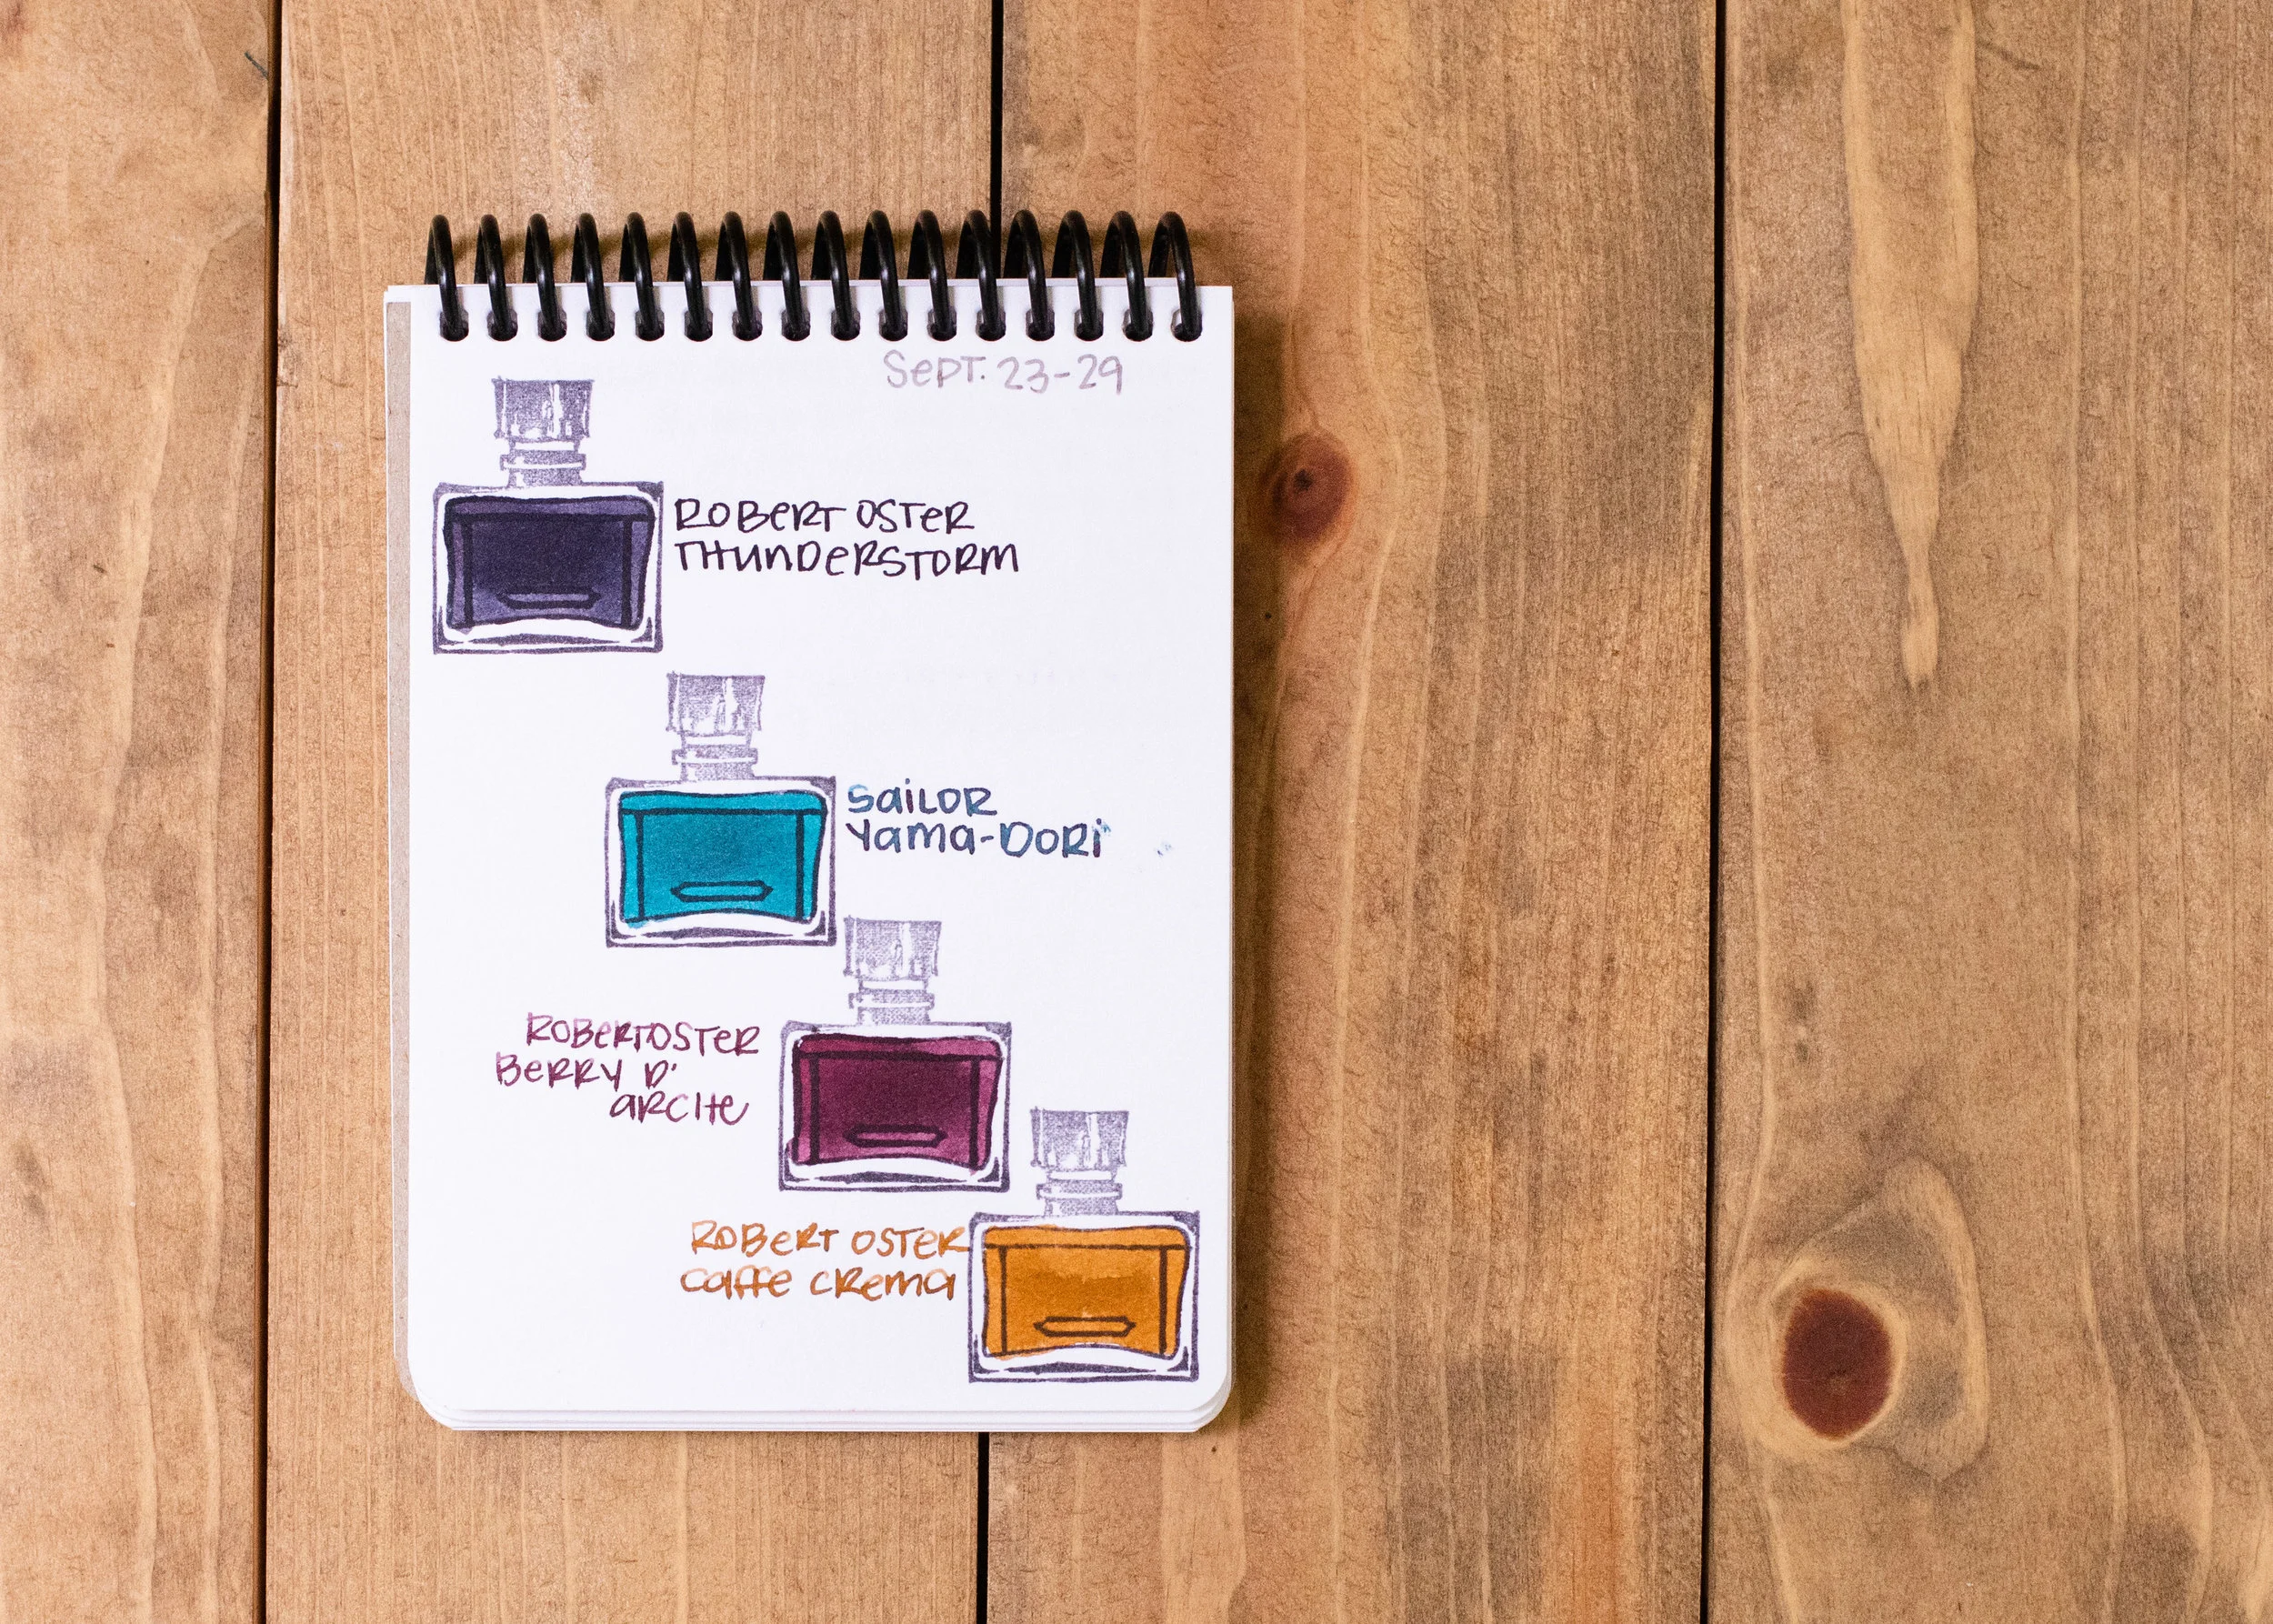 Sept. 23-29
ROBERT OSTER
THUNDERSTORM
SAILOR
YAMA-DORI
ROBERT OSTER
BERRY D'
ARCITE
ROBERT OSTER
CAFFE CREMA